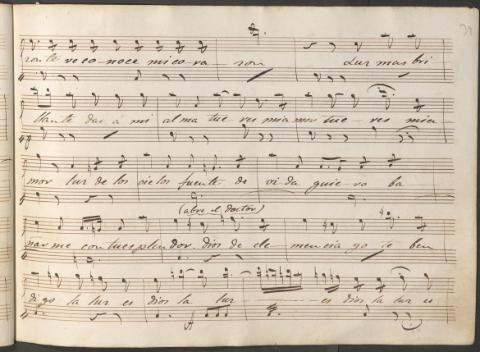 zon te reco-noce mi co-ra-zon Luz mas bri
llante das á mi alma tu eres mi amor tu e-res mi a
mor luz de los cielos fuente de vida quie-ro ba
(abre el doctor)
ñar me con tu esplendor dios de cle mencia yo te ben
digo la luz es dios la luz es dios la luz es